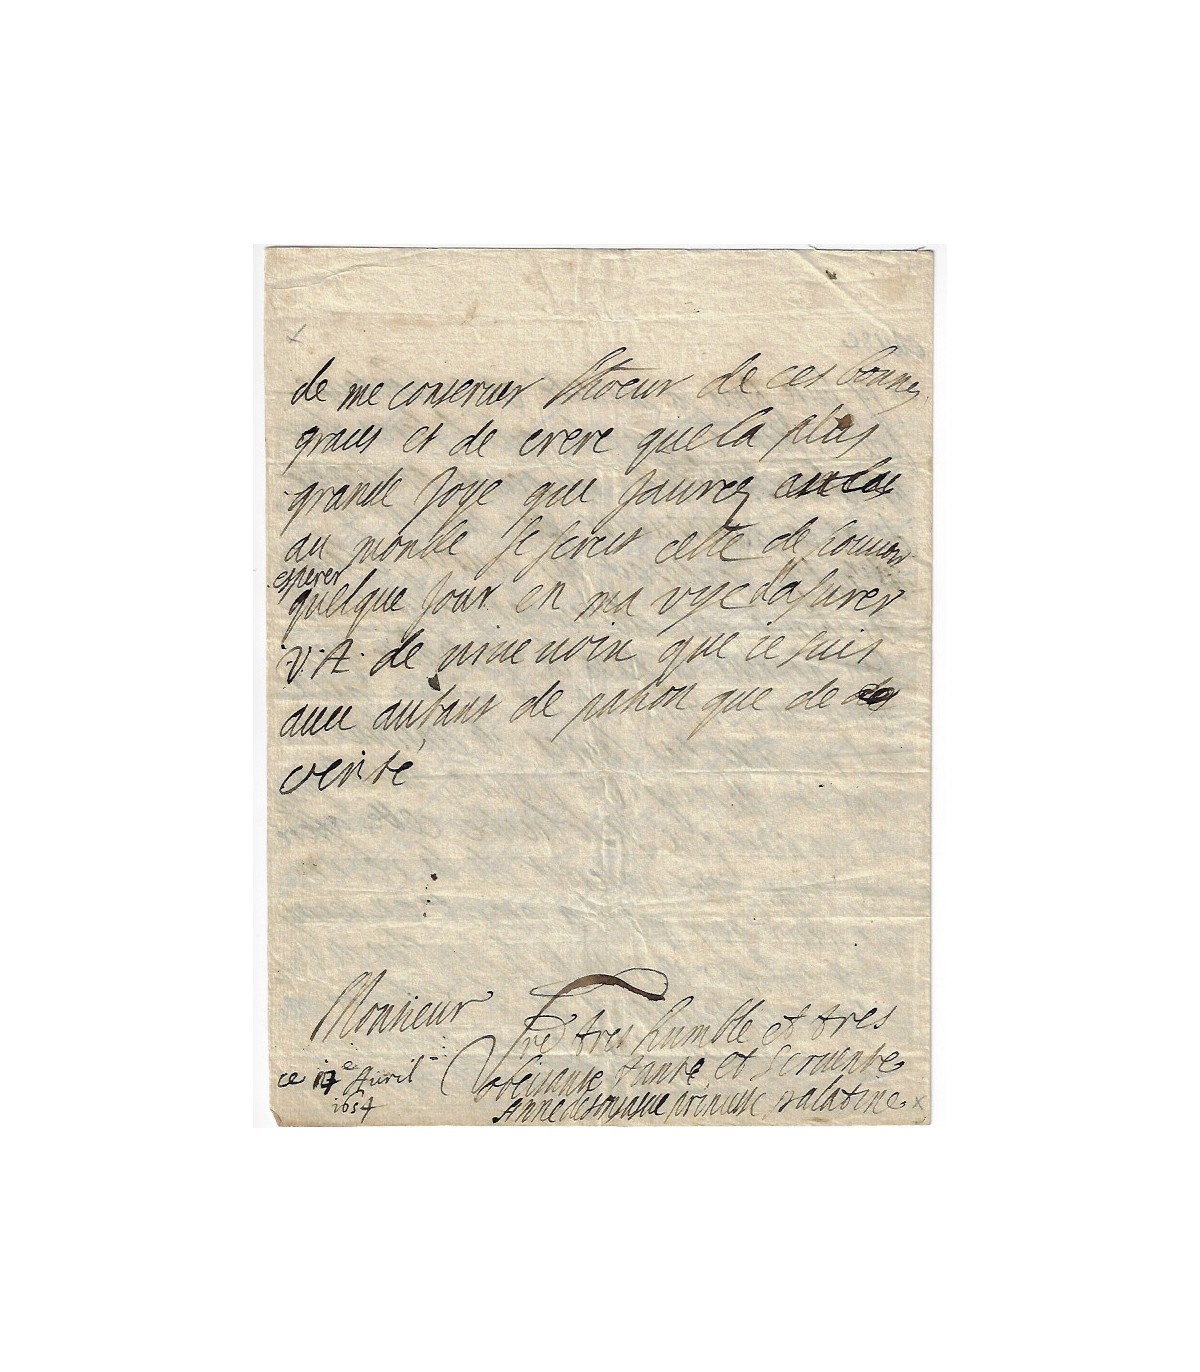 de me conseruer lhoeur de ces bonnes
graces et de crere que la plus
grande joye que jaurez
au monde se serat cette de pouuoir
esperer
quelque jour en ma vye dasurer
V. A. de viue uoix que ie suis
auec autant de pasion que de
verité
Monsieur
Vre tres humble et tres
obeisante tante et seruente
Anne de gonzague princesse palatine
ce 17e Auril
1654